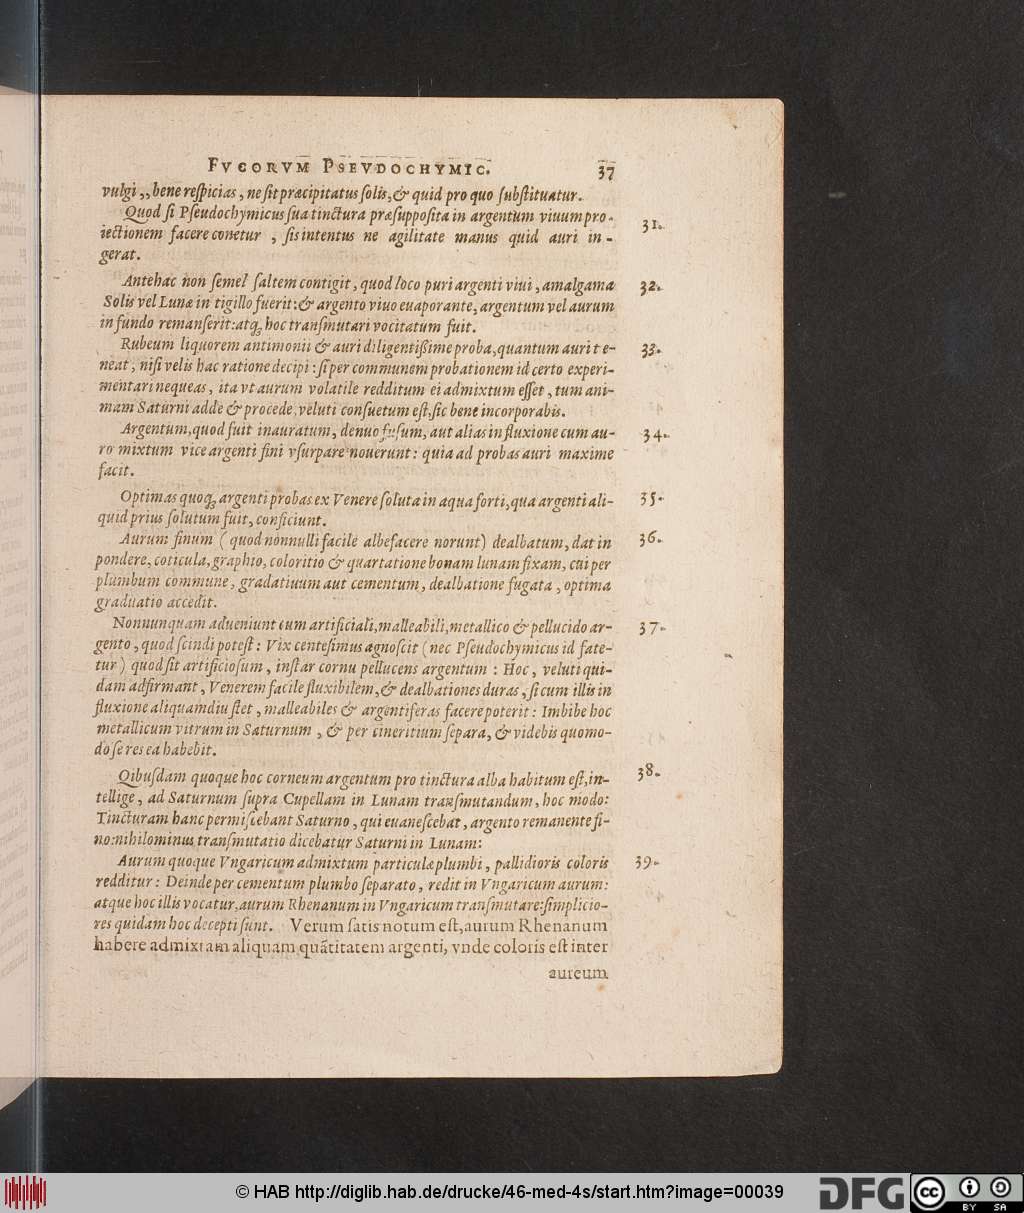 FVCORVM PSEVDOCHYMIC. 37
vulgi,, bene reſpicias, ne ſit præcipitatus ſolis, & quid pro quo ſubſtituatur.
Quod ſi Pſeudochymicus ſua tinctura præſuppoſita in argentum viuum pro- 31.
iectionem facere conetur, ſis intentus ne agilitate manus quid auri in-
gerat.
Antehac non ſemel ſaltem contigit, quod loco puri argenti viui, amalgama 32.
Solis vel Lunæ in tigillo fuerit: & argento viuo euaporante, argentum vel aurum
in fundo remanſerit: atq; hoc tranſmutari vocitatum fuit.
Rubeum liquorem antimonii & auri diligentißime proba, quantum auri te- 33.
neat, niſi velis hac ratione decipi: ſi per communem probationem id certo experi-
mentari nequeas, ita vt aurum volatile redditum ei admixtum eſſet, tum ani-
mam Saturni adde & procede, veluti conſuetum eſt, ſic bene incorporabis.
Argentum, quod fuit inauratum, denuo fuſum, aut alias in fluxione cum au- 34.
ro mixtum vice argenti fini vſurpare nouerunt: quia ad probas auri maxime
facit.
Optimas quoq; argenti probas ex Venere ſoluta in aqua forti, qua argenti ali- 35.
quid prius ſolutum fuit, conficiunt.
Aurum finum (quod nonnulli facile albefacere norunt) dealbatum, dat in 36.
pondere, coticula, graphio, coloritio & quartatione bonam lunam fixam, cui per
plumbum commune, gradatiuum aut cementum, dealbatione fugata, optima
graduatio accedit.
Nonnunquam adueniunt cum artificiali, malleabili, metallico & pellucido ar- 37.
gento, quod ſcindi poteſt: Vix centeſimus agnoſcit (nec Pſeudochymicus id fate-
tur) quod ſit artificioſum, inſtar cornu pellucens argentum: Hoc, veluti qui-
dam adfirmant, Venerem facile fluxibilem, & dealbationes duras, ſi cum illis in
fluxione aliquamdiu ſtet, malleabiles & argentiferas facere poterit: Imbibe hoc
metallicum vitrum in Saturnum, & per cineritium ſepara, & videbis quomo-
do ſe res ea habebit.
Qibuſdam quoque hoc corneum argentum pro tinctura alba habitum eſt, in- 38.
tellige, ad Saturnum ſupra Cupellam in Lunam tranſmutandum, hoc modo:
Tincturam hanc permiſcebant Saturno, qui euaneſcebat, argento remanente fi-
no: nihilominus tranſmutatio dicebatur Saturni in Lunam:
Aurum quoque Vngaricum admixtum particulæ plumbi, pallidioris coloris 39.
redditur: Deinde per cementum plumbo ſeparato, redit in Vngaricum aurum:
atque hoc illis vocatur, aurum Rhenanum in Vngaricum tranſmutare: ſimplicio-
res quidam hoc decepti ſunt. Verum ſatis notum eſt, aurum Rhenanum
habere admixtam aliquam quãtitatem argenti, vnde coloris eſt inter
aureum
© HAB http://diglib.hab.de/drucke/46-med-4s/start.htm?image=00039
DFG
cc BY SA